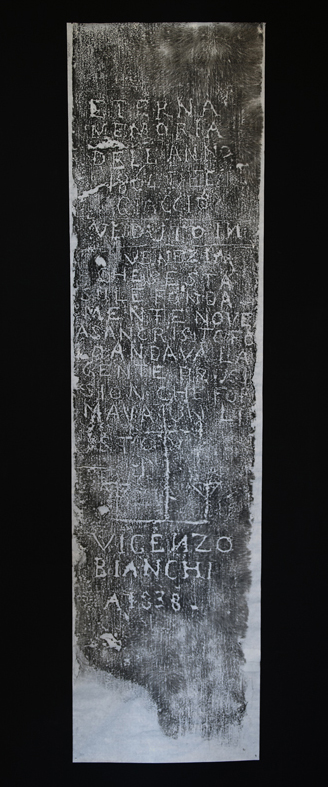 ETERNA
MEMORIA
DELL ANNO
1864 DEL
GIACCIO
VEDUTO IN
VENEZIA
CHE SESTA
SULE FONDA
MENTE NOVE
ASANCRISTOFO
ANDAVA LA
GENTE
SION CHE FOR
MAVA UN LI
STON
VICENZO
BIANCHI
A 1838